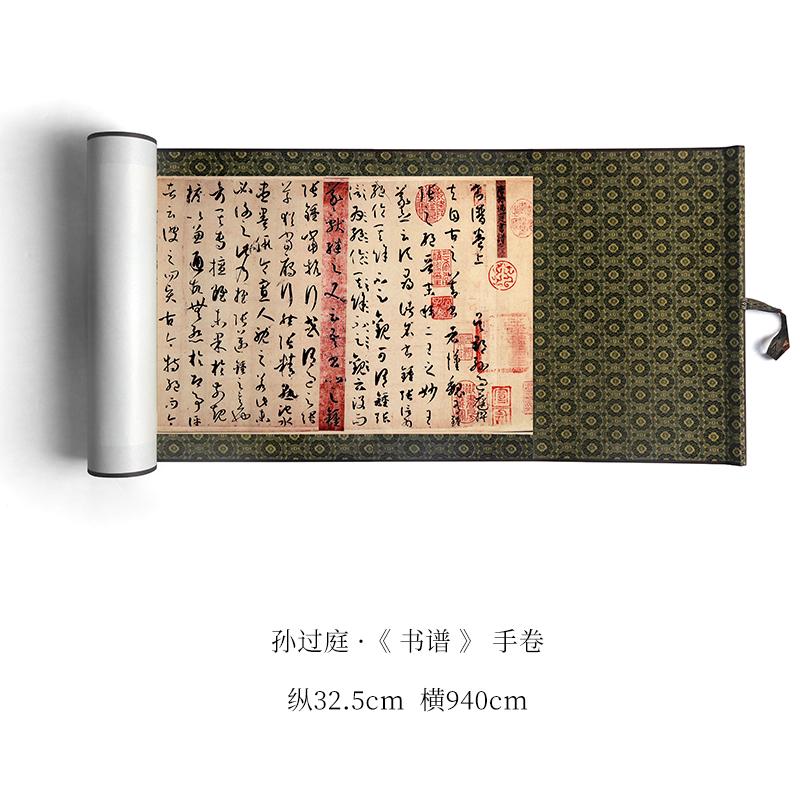 書譜卷上 吳郡孫過庭撰
夫自古之善書者漢魏有鍾
張之絕晉末稱二王之妙王
羲之云頃尋諸名書鍾張信
為絕倫其餘不足觀可謂鍾張
云沒而
羲獻繼之又云吾書比之鍾
張鍾當抗行或謂過之張
草猶當雁行然張精熟池水
盡墨假令寡人耽之若此未
必謝之此乃推張邁鍾之意
考其專擅雖未果於前規
摭以兼通故無慚於即事評
者云彼之四賢古今特絕而今
孙过庭·《 书谱 》 手卷
纵32.5cm 横940cm